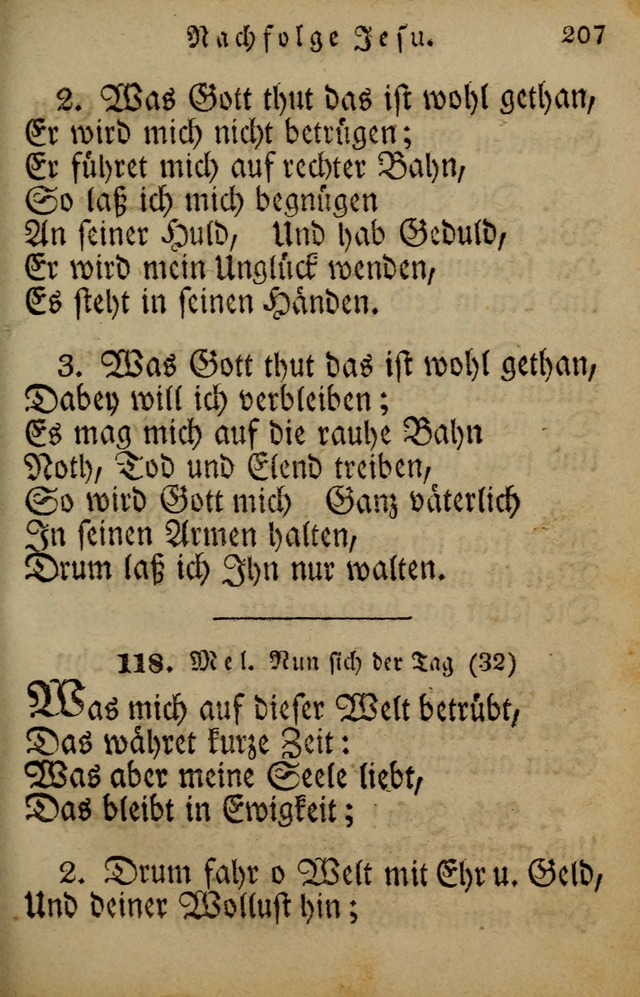 Nachfolge Jesu. 207
2. Was Gott thut das ist wohl gethan,
Er wird mich nicht betrügen;
Er führet mich auf rechter Bahn,
So laß ich mich begnügen
An seiner Huld, Und hab Geduld,
Er wird mein Unglück wenden,
Es steht in seinen Händen.
3. Was Gott thut das ist wohl gethan,
Dabey will ich verbleiben;
Es mag mich auf die rauhe Bahn
Noth, Tod und Elend treiben,
So wird Gott mich Ganz väterlich
In seinen Armen halten,
Drum laß ich Ihn nur walten.
118. Mel. Nun sich der Tag (32)
Was mich auf dieser Welt betrübt,
Das währet kurze Zeit:
Was aber meine Seele liebt,
Das bleibt in Ewigkeit;
2. Drum fahr o Welt mit Ehr u. Geld,
Und deiner Wollust hin;